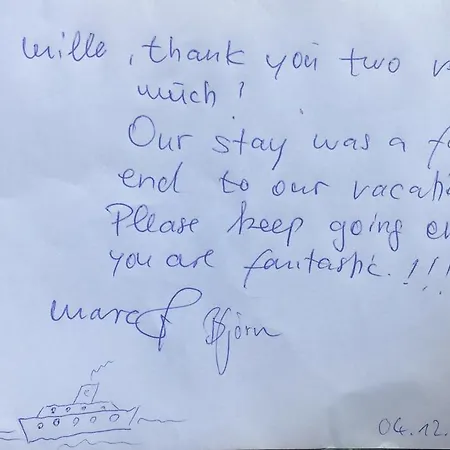 mille, thank you two v
much!
Our stay was a fa
end to our vacati
Please keep going en
you are fantastic.!!!
Marc & Björn
C
04.12.